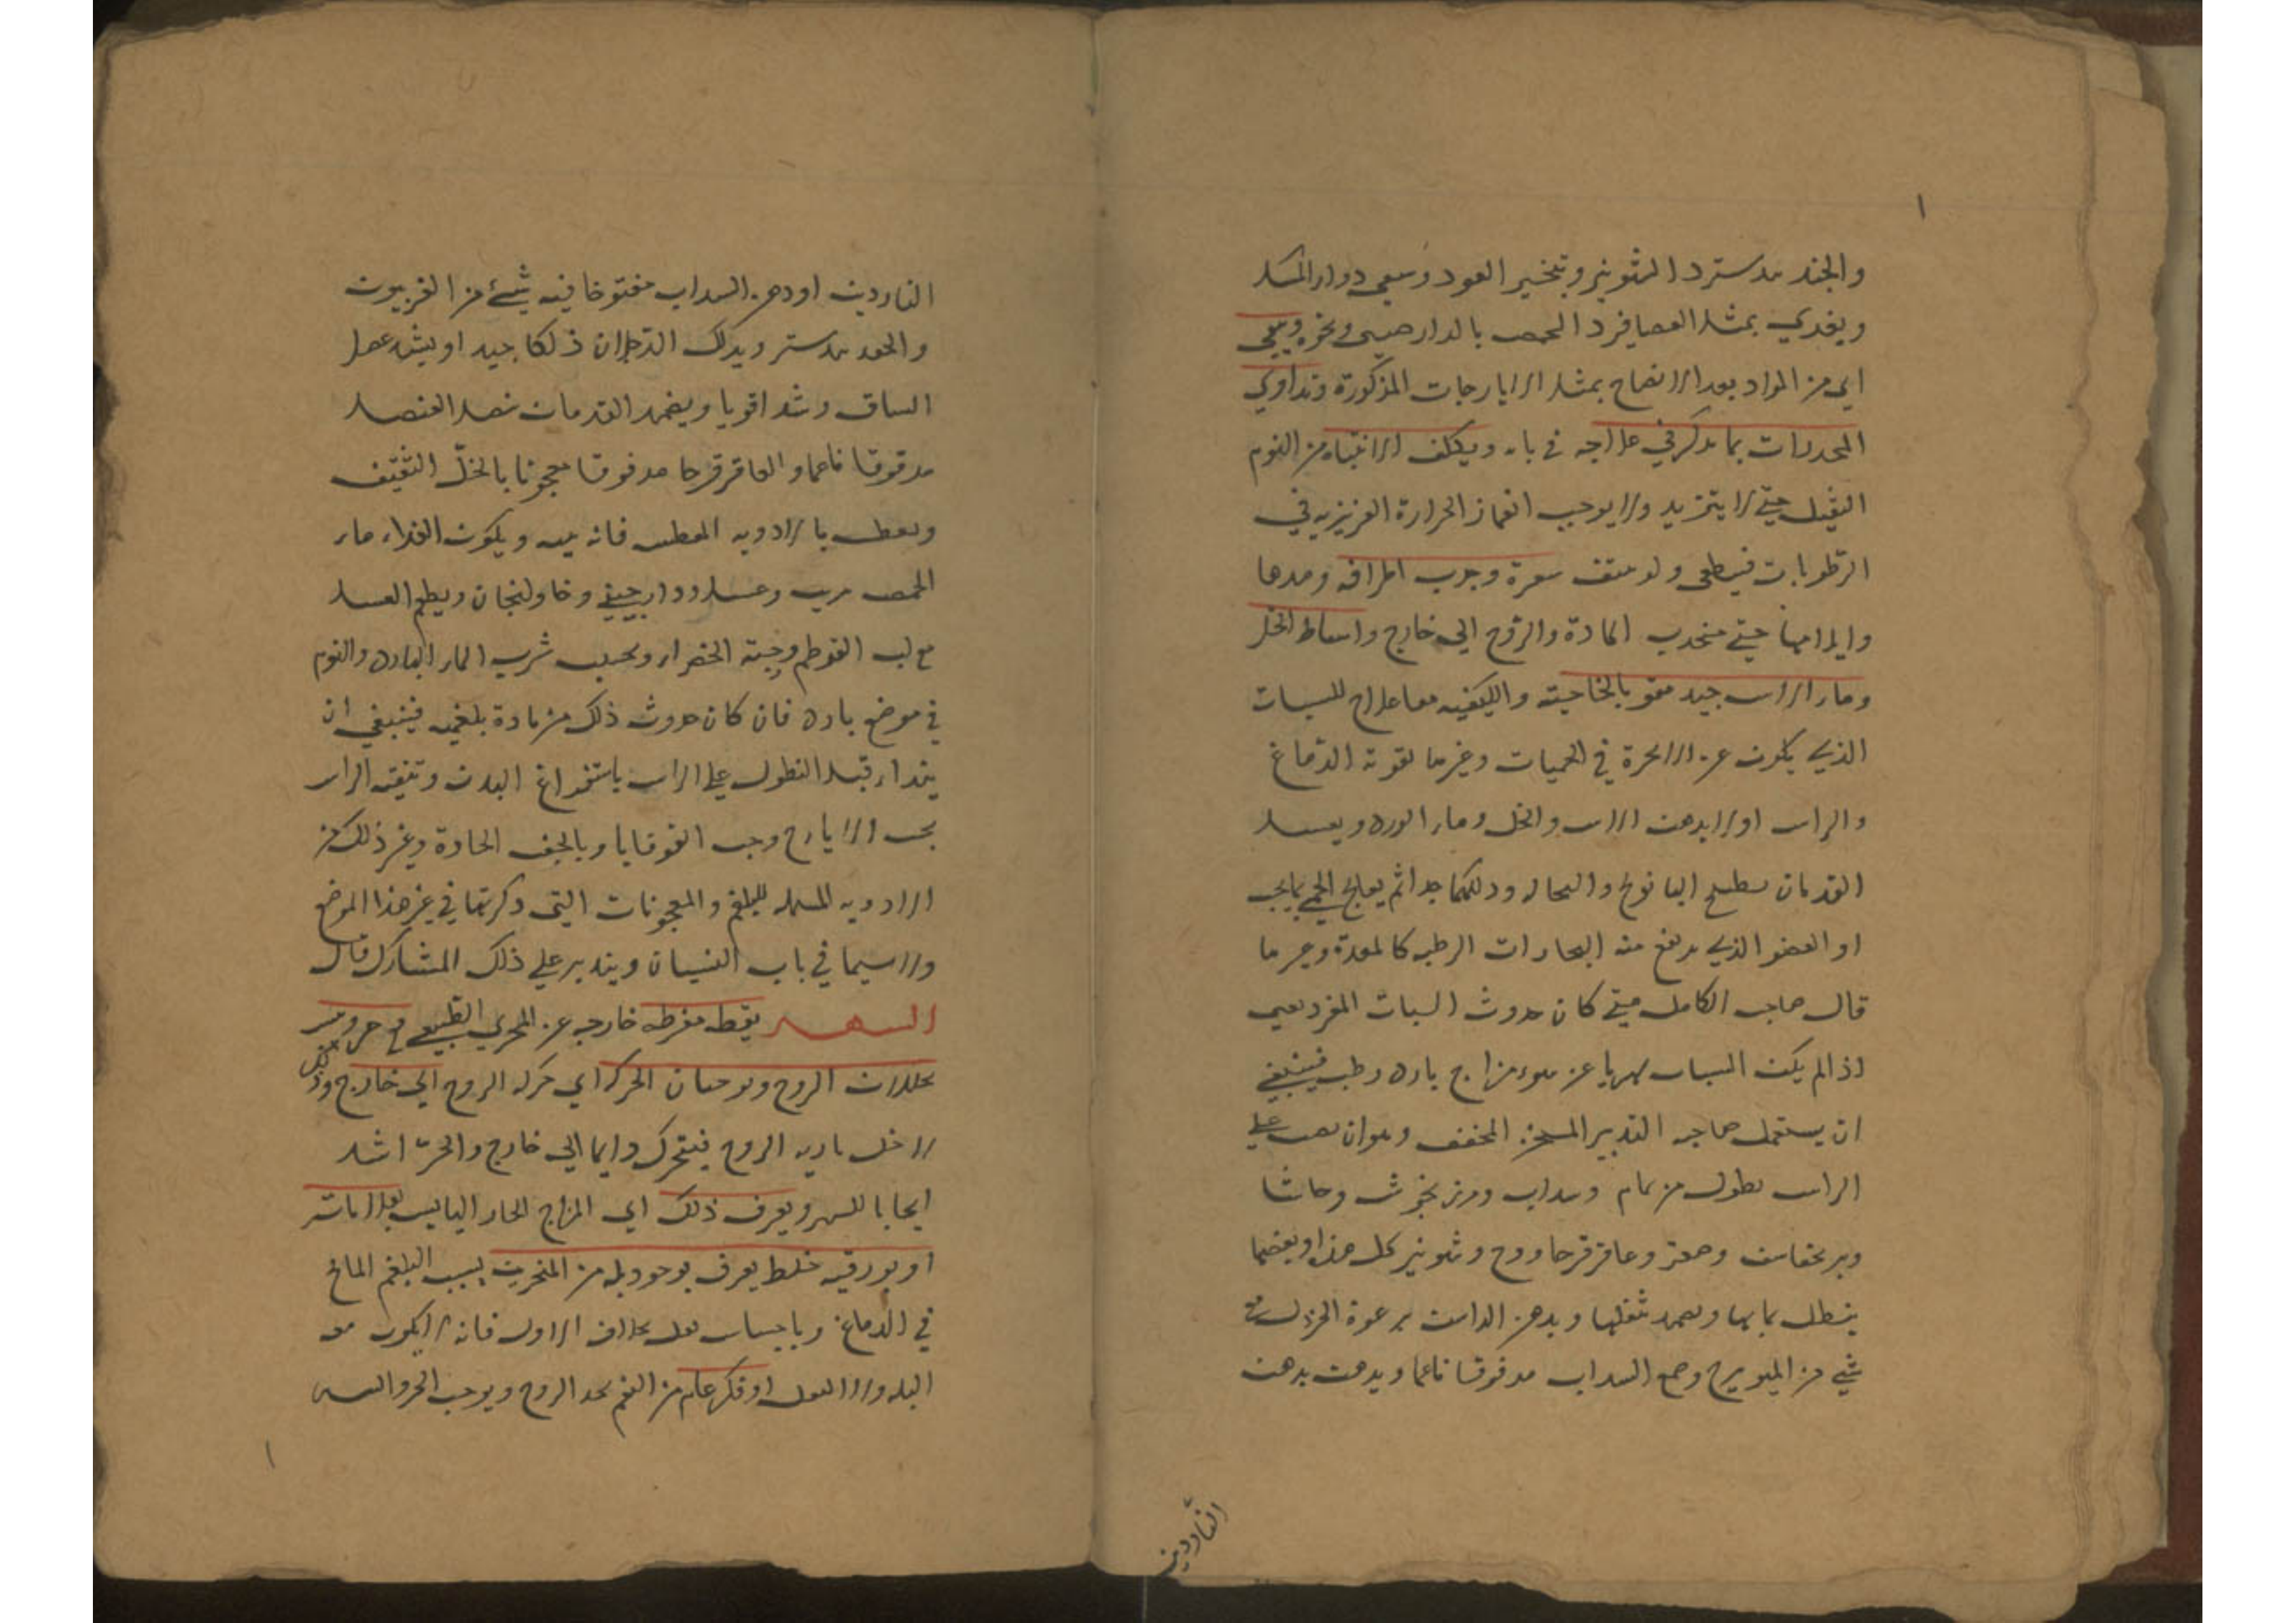 والجند بيدستر د الشونيز وتبخير العود وسعى دواء المسك
ويغذي بمثل العصافير د الحمص بالدارصيني ونحوه وينقى
اي من المواد بعد الانضاج بمثل الايارجات المذكورة وتداوي
المخدرات بما يذكر في علاجه في بابه ويكلف الانتباه من النوم
الثقيل حتى لا يتزيد ولا يوجب انغماز الحرارة الغريزيه في
الرطوبات فينطفى ولو بنتف شعره وجذب اطرافه ومدها
وايلامها حتى ينجذب المادة والروح الى خارج واسعاط الخل
وماء الاس جيد مقو بالخاصيته والكيفيه معا علاج للسبات
الذي يكون عن الابخرة في الحميات وغيرها تقوية الدماغ
والراس اولا بدهن الاس والخل وماء الورد ويغسل
القدمان بطبيخ البابونج والنخاله ودلكهما جدا ثم يعالج الحمى بما يجب
او العضو الذي يرتفع منه البخارات الرطبه كالمعدة وغيرها
قال صاحب الكامل متى كان حدوث السبات المفرد يعني
اذا لم يكن السبات سهريا عن سوء مزاج بارد رطب فينبغي
ان يستعمل صاحبه التدبير المسخن المجفف وهو ان يصب على
الراس نطول من نمام وسداب ومرزنجوش وحاشا
وبرنجاسف وصعتر وعاقرقرحا ووج وشونيز كل هذا او بعضها
ينطل بمايها ويضمد بثفلها ويدهن الراس برغوة الخردل مع
شي من الميويزج وصمغ السداب مدقوقا ناعما ويدهن بدهن
الناردين
الناردين او دهن السداب مفتوحا فيه شيء من الفربيون
والجند بيدستر ويدلك الرجلان دلكا جيدا ويشد عضل
الساق شدا قويا ويضمد القدمان ببصل العنصل
مدقوقا ناعما والعاقرقرحا مدقوقا معجونا بالخل الثقيف
ويعطس بالادويه المعطسه فانه ينبه ويكون الغذاء ماء
الحمص بزيت وعسل ودارصيني وخاولنجان ويطعم العسل
مع لب القرطم وحبة الخضراء ويجتنب شرب الماء البارد والنوم
في موضع بارد فان كان حدوث ذلك من مادة بلغميه فينبغي ان
يبتداء قبل النطول على الراس باستفراغ البدن وتنقية الراس
بحب الايارج وحب القوقايا وبالحقن الحادة وغير ذلك من
الادويه المسهله للبلغم والمعجونات التي ذكرتها في غير هذا الموضع
ولاسيما في باب النسيان ويتدبر على ذلك المشارك قال
السهر يقظه مفرطه خارجه عن المجرى الطبيعي مع حر ويبس
يحللان الروح ويوجبان الحركه اي حركه الروح الى خارج
داخل باريه الروح فيتحرك دايما الى خارج والحر اشد
ايجابا للسهر ويعرف ذلك اي المزاج الحار اليابس بعلاماته
او بورقيه خلط يعرف بوجود بله من المنخرين بسبب البلغم المالح
في الدماغ وباحساس ثقل بخلاف الاول فانه لا يكون معه
البله ولا الثقل او فكر عام من الغم يحد الروح ويوجب الحر واليبس